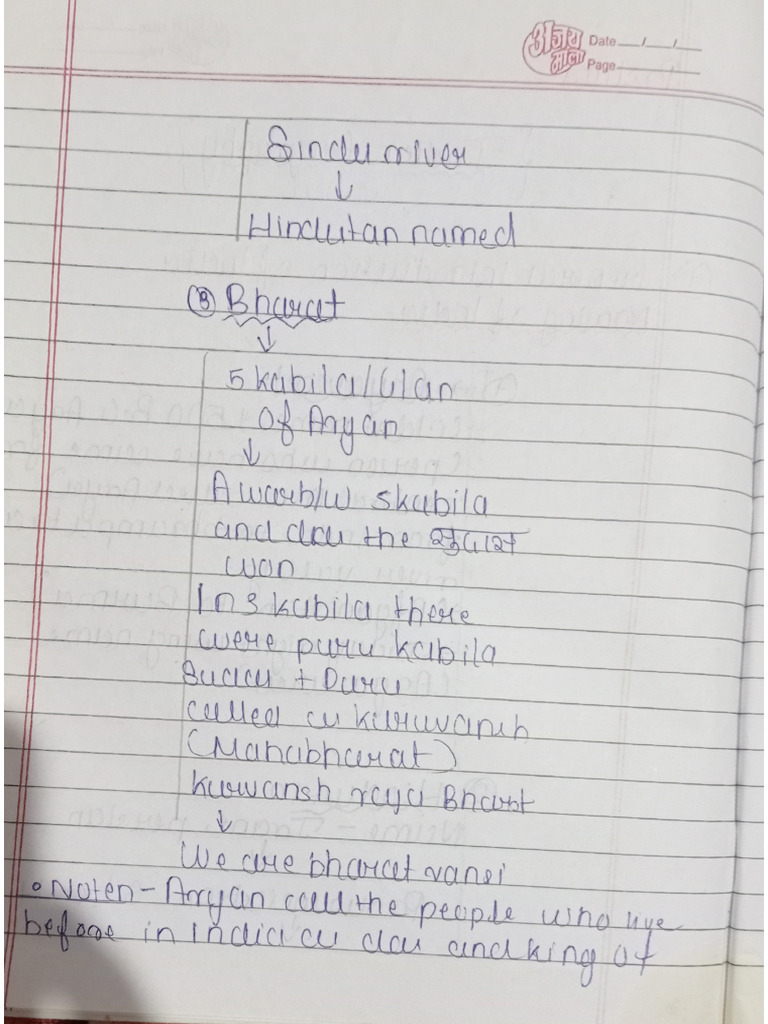 अजय
माला
Date __/__/__
Page
Sindu river
↓
Hindutan named
(B) Bharat
↓
5 kabila/Clan
of Aryan
↓
A warb/w 5kabila
and das the सुदास
won
In 5 kabila there
were puru kabila
Sudas + Puru
called as kuruvansh
(Mahabharat)
Kurwansh raja Bharat
↓
We are bharat vansi
Noten - Aryan call the people who live
before in India as das and king of